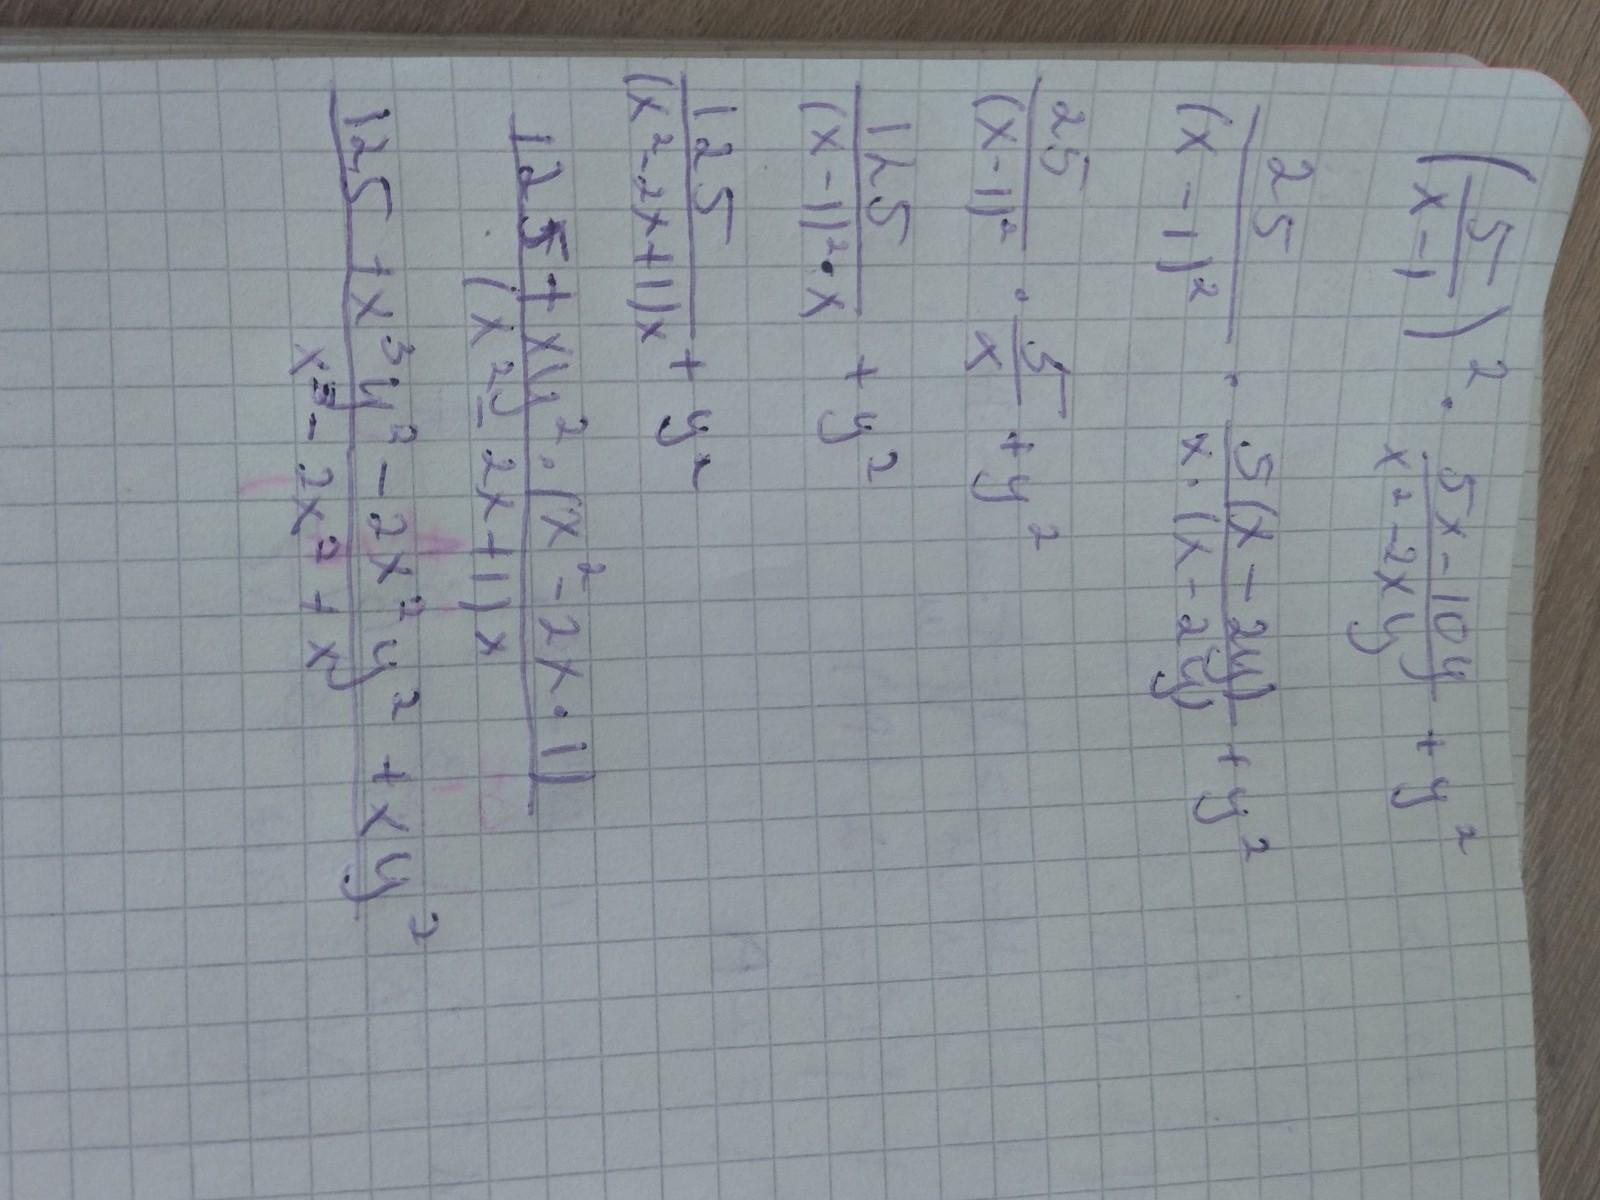 (5/(x-1))² · (5x-10y)/(x²-2xy) + y²
25/(x-1)² · 5(x-2y)/(x·(x-2y)) + y²
25/(x-1)² · 5/x + y²
125/((x-1)²·x) + y²
125/((x²-2x+1)x) + y²
(125+xy²·(x²-2x·1))/((x²-2x+1)x)
(125+x³y²-2x²y²+xy²)/(x³-2x²+x)